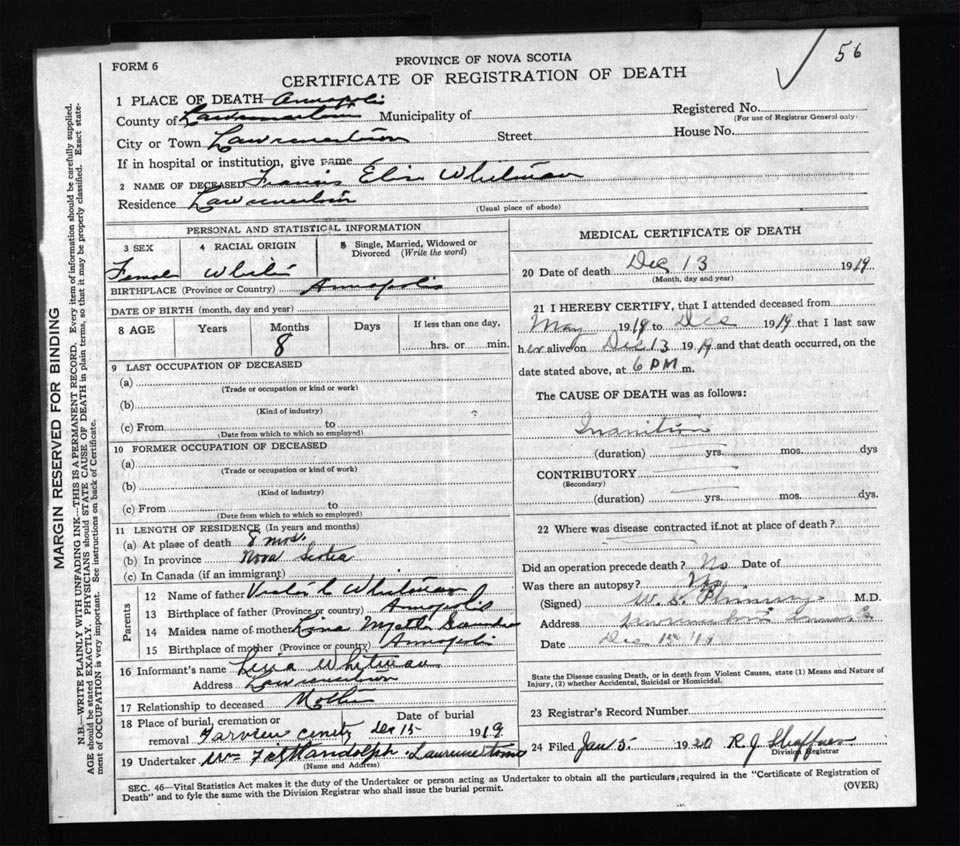 56
PROVINCE OF NOVA SCOTIA
FORM 6
CERTIFICATE OF REGISTRATION OF DEATH
1 PLACE OF DEATH Annapolis
County of Lawrencetown Municipality of
Registered No.
(For use of Registrar General only)
City or Town Lawrencetown Street House No.
If in hospital or institution, give name
2 NAME OF DECEASED Francis Whitman
Residence Lawrencetown
(Usual place of abode)
PERSONAL AND STATISTICAL INFORMATION
3 SEX 4 RACIAL ORIGIN 5 Single, Married, Widowed or Divorced (Write the word)
Female White
BIRTHPLACE (Province or Country) Annapolis
DATE OF BIRTH (month, day and year)
8 AGE Years Months Days If less than one day,
8 hrs. or min.
9 LAST OCCUPATION OF DECEASED
(a)
(Trade or occupation or kind or work)
(b)
(Kind of industry)
(c) From to
(Date from which to which so employed)
10 FORMER OCCUPATION OF DECEASED
(a)
(Trade or occupation or kind of work)
(b)
(Kind of industry)
(c) From to
(Date from which to which so employed)
11 LENGTH OF RESIDENCE (In years and months)
(a) At place of death 8 mos.
(b) In province Nova Scotia
(c) In Canada (if an immigrant)
Parents
12 Name of father Whitman
13 Birthplace of father (Province or country) Annapolis
14 Maiden name of mother
15 Birthplace of mother (Province or country) Annapolis
16 Informant's name Whitman
Address Lawrencetown
17 Relationship to deceased Mother
18 Place of burial, cremation or Date of burial
removal Fairview cemety Dec 15 1919
19 Undertaker Wm Randolph Lawrencetown
(Name and Address)
MEDICAL CERTIFICATE OF DEATH
20 Date of death Dec 13 1919
(Month, day and year)
21 I HEREBY CERTIFY, that I attended deceased from
May 1919 to Dec 1919 that I last saw
her alive on Dec 13 1919 and that death occurred, on the
date stated above, at 6 PM m.
The CAUSE OF DEATH was as follows:
Inanition
(duration) yrs. mos. dys
CONTRIBUTORY
(Secondary)
(duration) yrs. mos. dys.
22 Where was disease contracted if not at place of death?
Did an operation precede death? No Date of
Was there an autopsy? No
(Signed) M.D.
Address Lawrencetown
Date Dec 15 19
State the Disease causing Death, or in death from Violent Causes, state (1) Means and Nature of
Injury, (2) whether Accidental, Suicidal or Homicidal.
23 Registrar's Record Number
24 Filed Jan 5 1920 R. J. Shaffner
Division Registrar
SEC. 46—Vital Statistics Act makes it the duty of the Undertaker or person acting as Undertaker to obtain all the particulars required in the "Certificate of Registration of
Death" and to fyle the same with the Division Registrar who shall issue the burial permit.
(OVER)
MARGIN RESERVED FOR BINDING
N.B.—WRITE PLAINLY WITH UNFADING INK—THIS IS A PERMANENT RECORD. Every item of information should be carefully supplied.
AGE should be stated EXACTLY. PHYSICIANS should STATE CAUSE OF DEATH in plain terms, so that it may be properly classified. Exact state-
ment of OCCUPATION is very important. See instructions on back of Certificate.